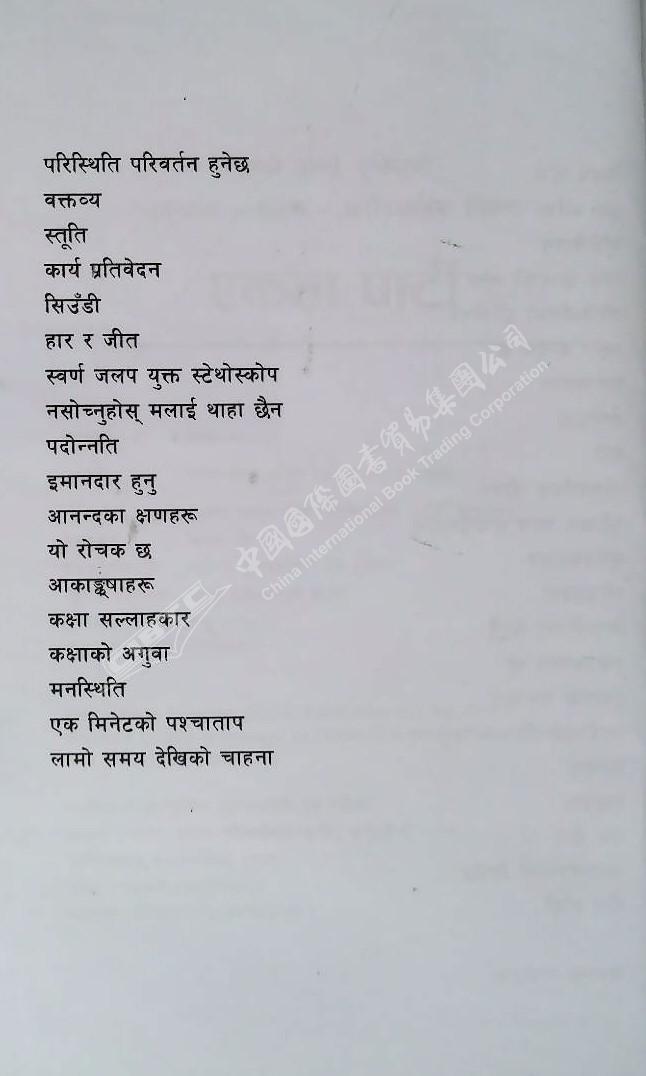 परिस्थिति परिवर्तन हुनेछ
वक्तव्य
स्तूति
कार्य प्रतिवेदन
सिउँडी
हार र जीत
स्वर्ण जलप युक्त स्टेथोस्कोप
नसोच्नुहोस् मलाई थाहा छैन
पदोन्नति
इमानदार हुनु
आनन्दका क्षणहरू
यो रोचक छ
आकाङ्क्षाहरू
कक्षा सल्लाहकार
कक्षाको अगुवा
मनस्थिति
एक मिनेटको पश्चाताप
लामो समय देखिको चाहना
中國國際圖書貿易集團公司
China International Book Trading Corporation
CIBTC